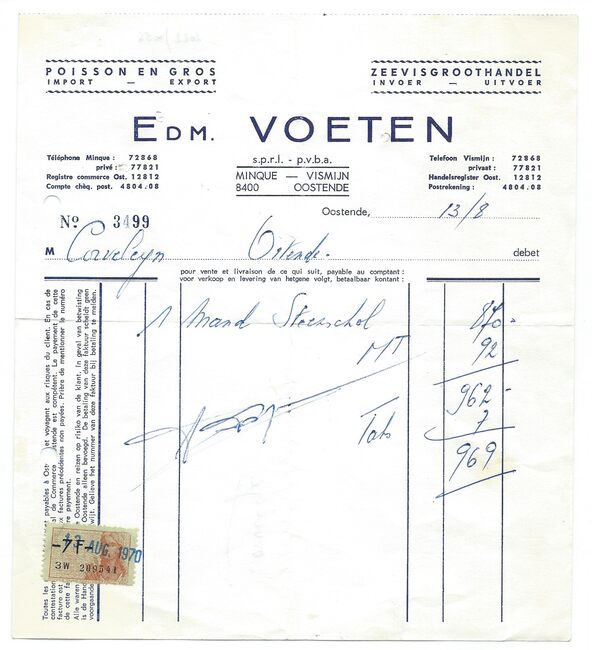 POISSON EN GROS
IMPORT — EXPORT
ZEEVISGROOTHANDEL
INVOER — UITVOER
EDM. VOETEN
Téléphone Minque : 72868
privé : 77821
Registre commerce Ost. 12812
Compte chèq. post. 4804.08
s.p.r.l. - p.v.b.a.
MINQUE — VISMIJN
8400 OOSTENDE
Telefoon Vismijn : 72868
privaat : 77821
Handelsregister Oost. 12812
Postrekening : 4804.08
Oostende, 13/8
No. 3499
M Coweleyn Ostende. debet
pour vente et livraison de ce qui suit, payable au comptant :
voor verkoop en levering van hetgene volgt, betaalbaar kontant :
1 Mand 870-
MT 92
962-
7
969
et voyagent aux risques du client. En cas de
est compétent. Le payement de cette
factures précédentes non payées. Prière de mentionner le numéro
payement.
Oostende en reizen op risiko van de klant, in geval van betwisting
Oostende alleen bevoegd. De betaling van deze faktuur scheldt geen
Gelieve het nummer van deze faktuur bij betaling te melden.
-7F-
13 AUG. 1970
3W 209541